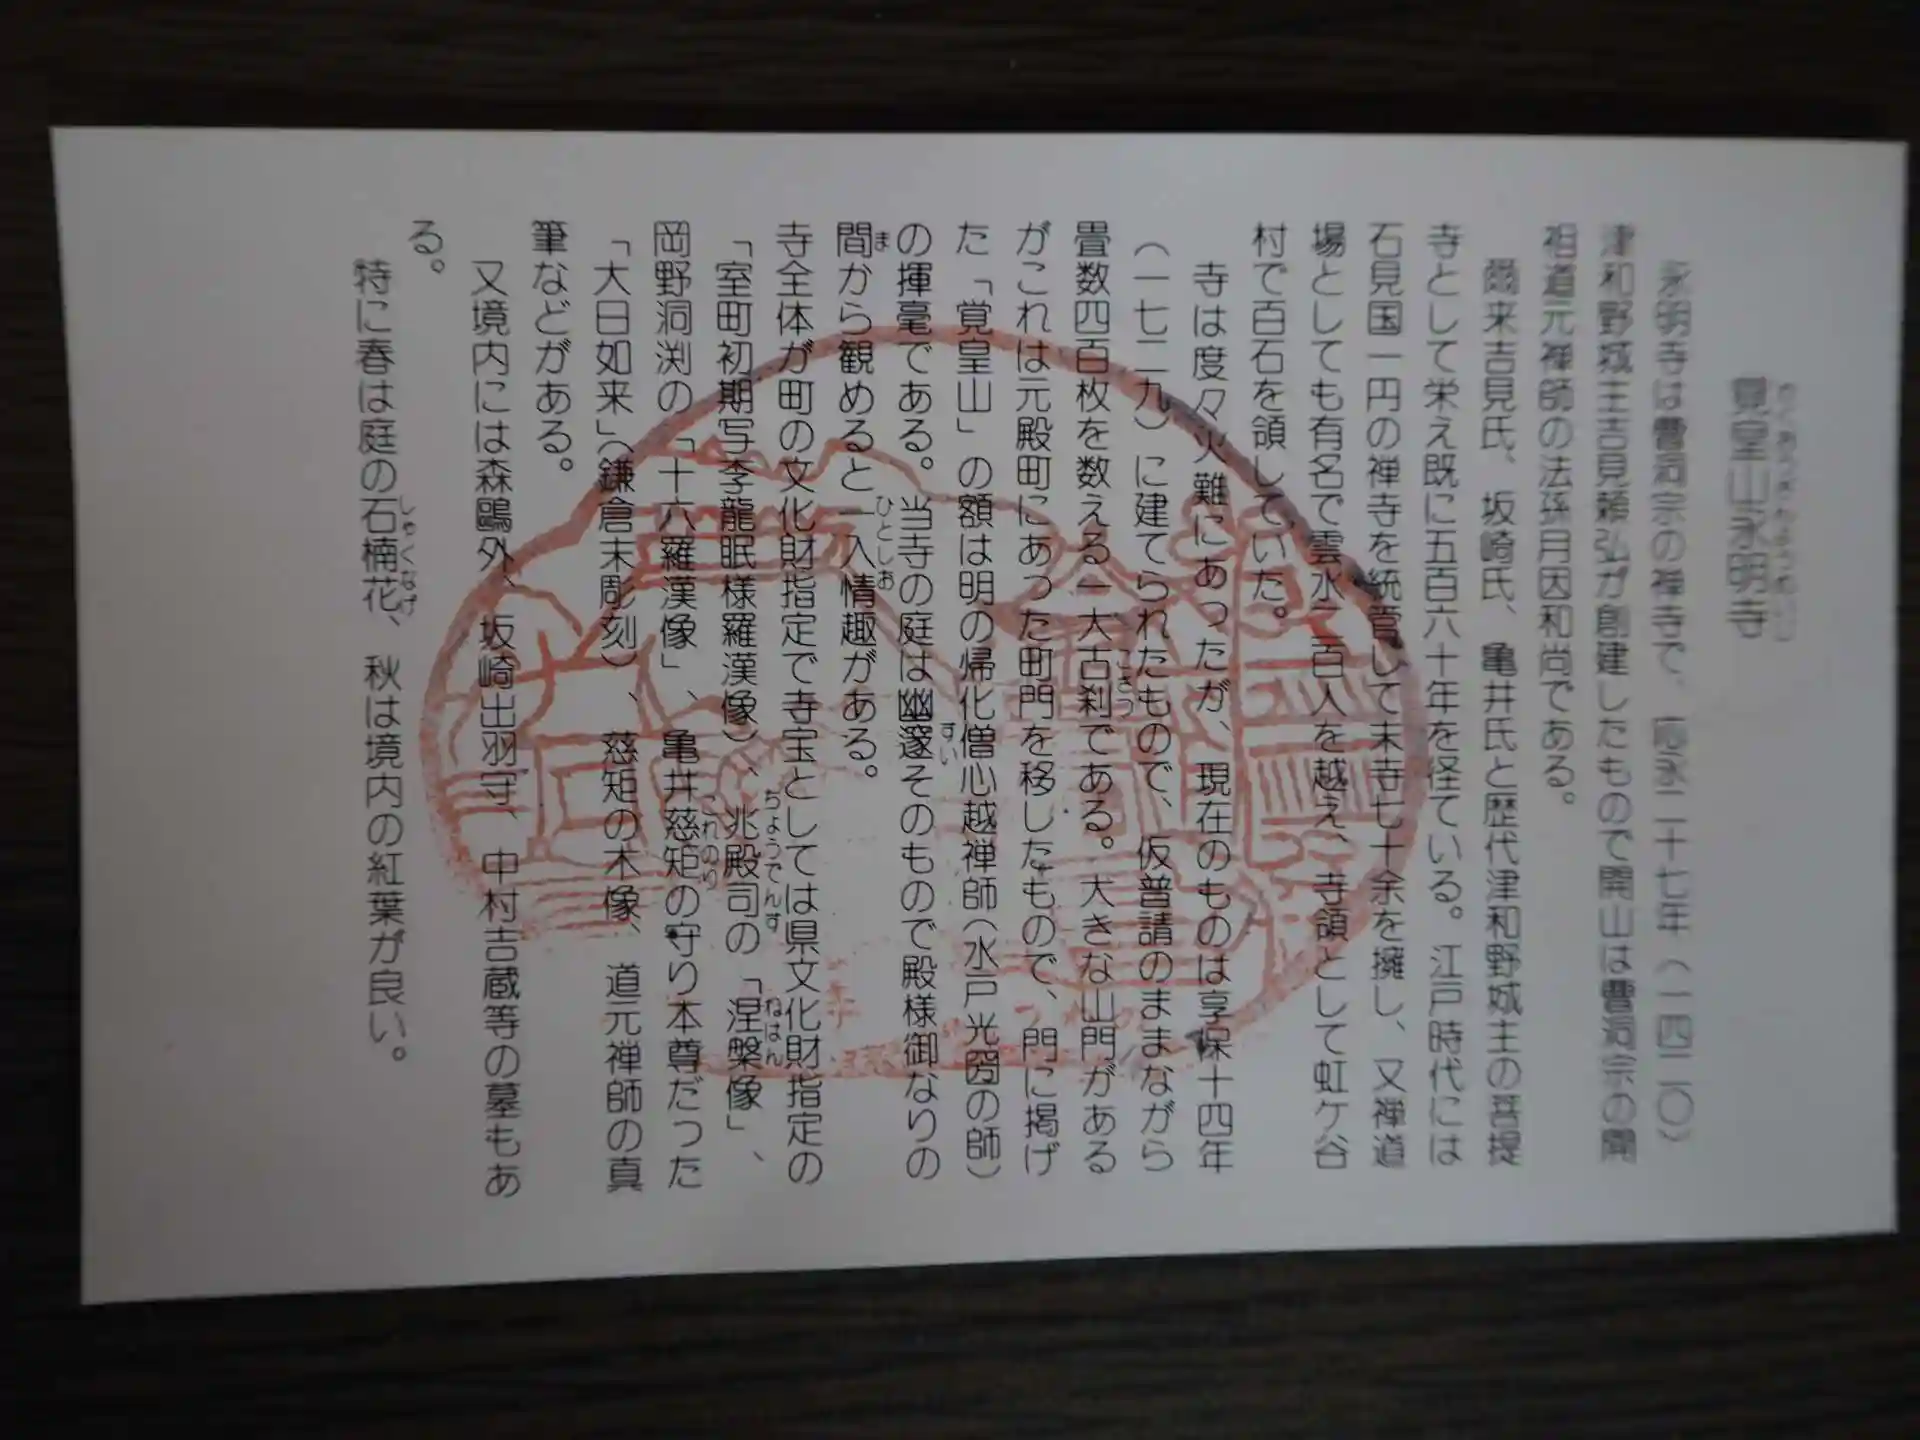 覚皇山永明寺
永明寺は曹洞宗の禅寺で、応永二十七年（一四二〇）
津和野城主吉見頼弘が創建したもので開山は曹洞宗の開
祖道元禅師の法孫月因和尚である。
爾来吉見氏、坂崎氏、亀井氏と歴代津和野城主の菩提
寺として栄え既に五百六十年を径ている。江戸時代には
石見国一円の禅寺を統菅して末寺七十余を擁し、又禅道
場としても有名で雲水二百人を越え、寺領として虹ケ谷
村で百石を領していた。
寺は度々火難にあったが、現在のものは享保十四年
（一七二九）に建てられたもので、仮普請のままながら
畳数四百枚を数える一大古刹である。大きな山門がある
こさつ
がこれは元殿町にあった町門を移したもので、門に掲げ
た「覚皇山」の額は明の帰化僧心越禅師（水戸光圀の師）
の揮毫である。当寺の庭は幽邃そのもので殿様御なりの
すい
間から観めると一入情趣がある。
ま
ひとしお
寺全体が町の文化財指定で寺宝としては県文化財指定の
「室町初期写李龍眠様羅漢像」、兆殿司の「涅槃像」、
ちょうでんす
ねはん
岡野洞渕の「十六羅漢像」、亀井慈矩の守り本尊だった
これのり
「大日如来」（鎌倉末彫刻）、慈矩の木像、道元禅師の真
筆などがある。
又境内には森鷗外、坂崎出羽守、中村吉蔵等の墓もあ
る。
特に春は庭の石楠花、秋は境内の紅葉が良い。
しゃくなげ